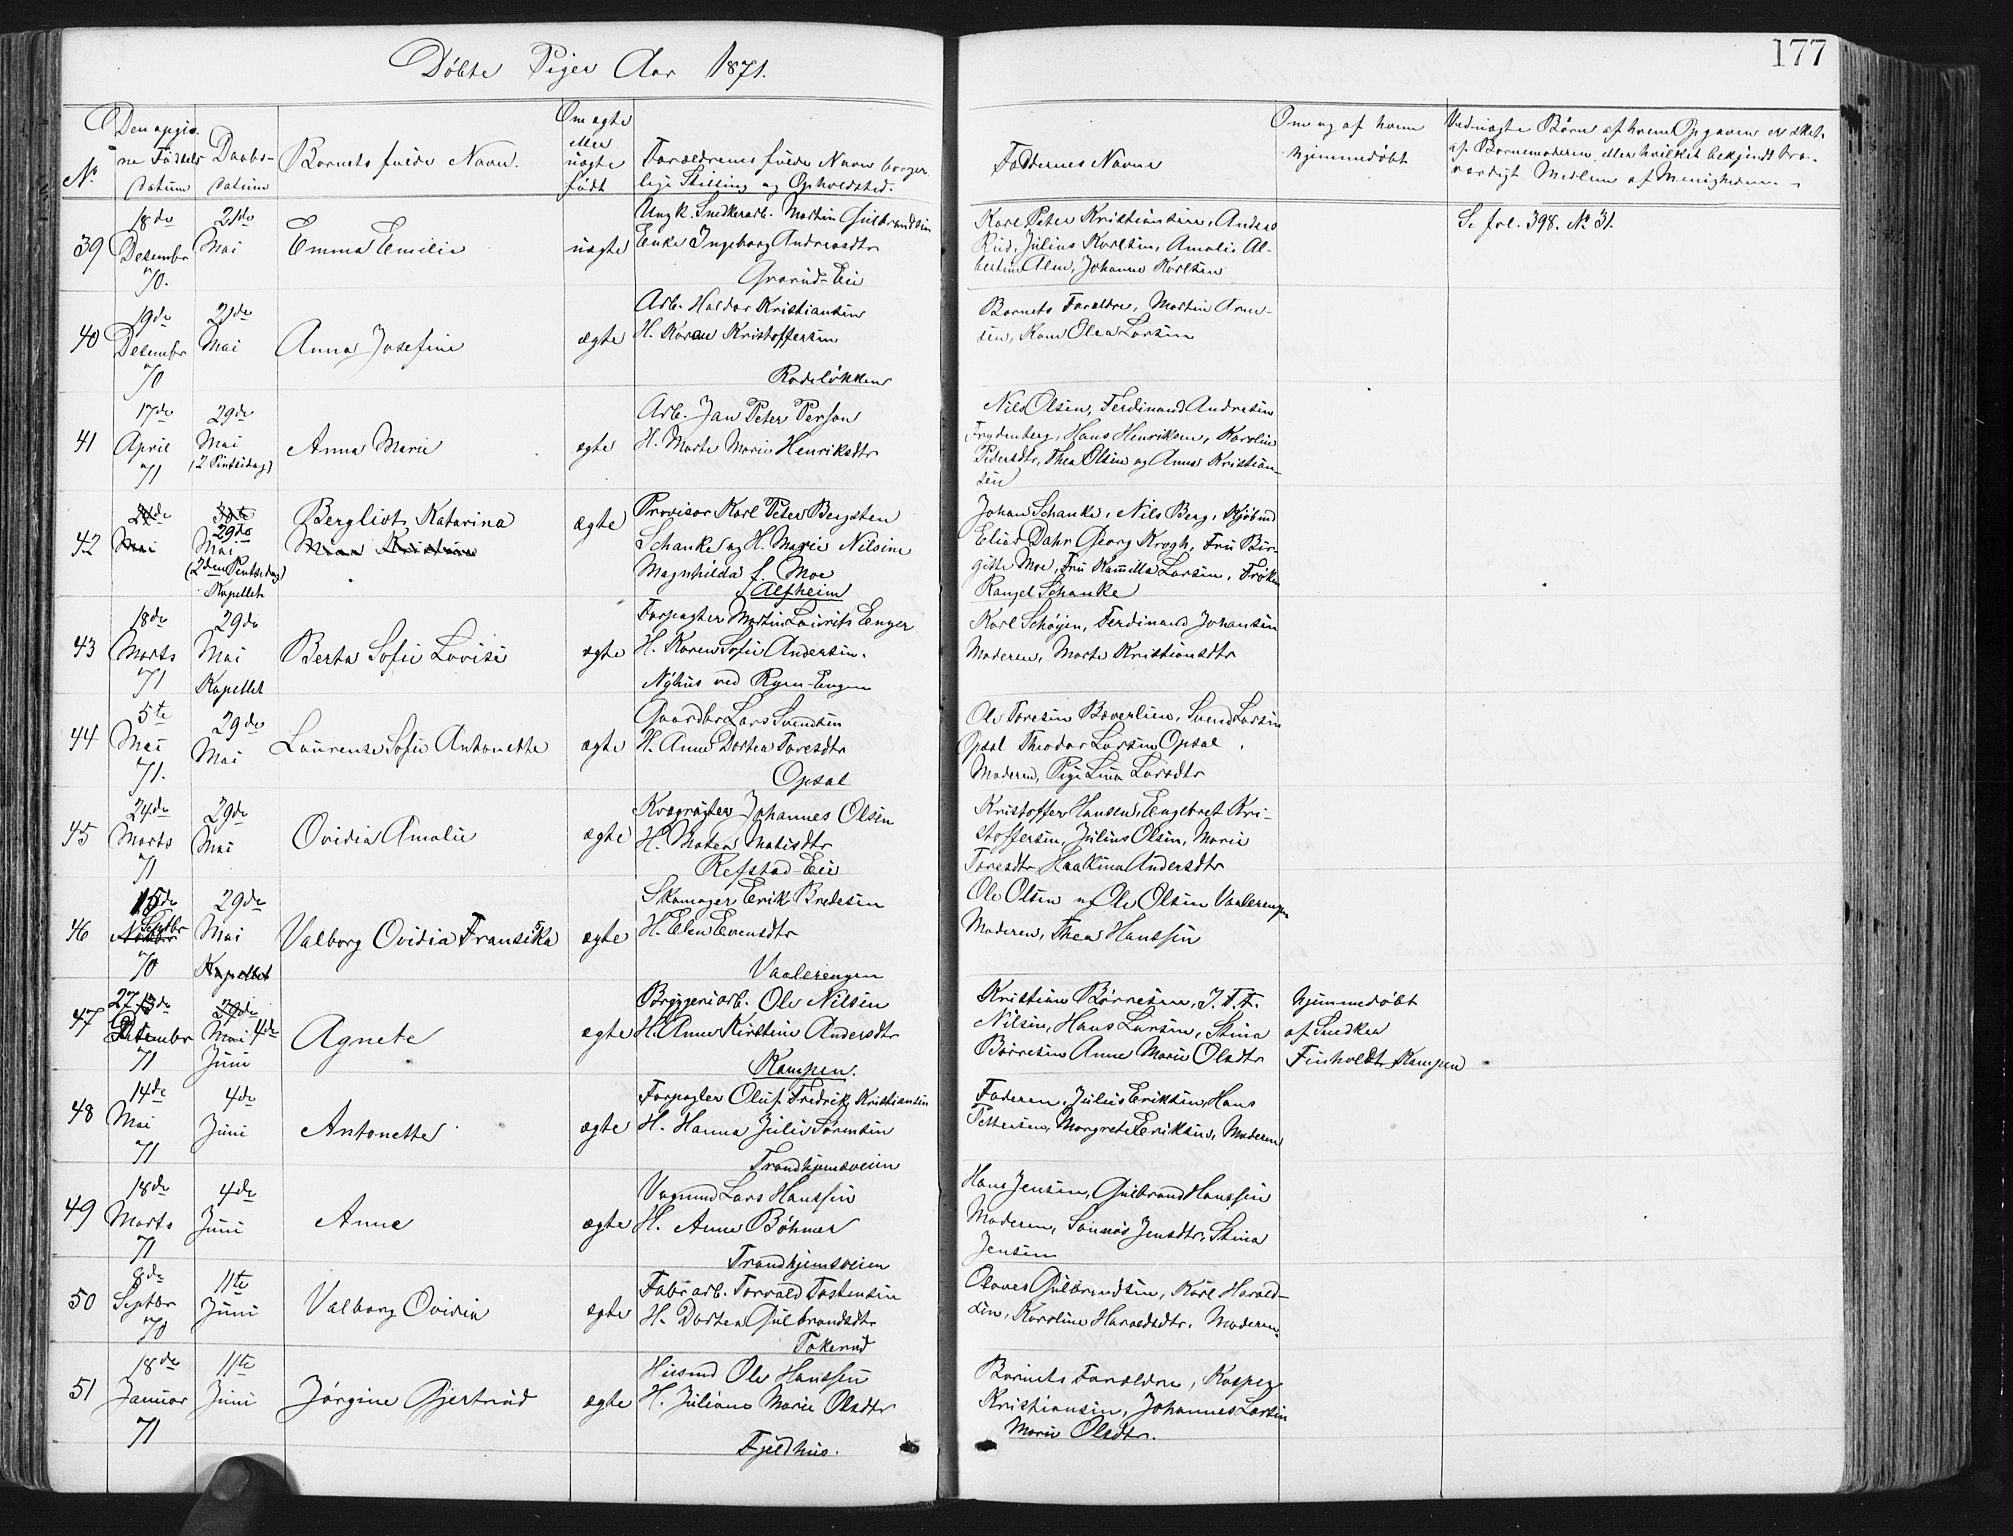 Döbte Piger Aar 1871.
177
No
Den opgiv-
ne Fødsels
Datum
Daabs-
Datum
Barnets fulde Navn.
Om ægte
eller
uægte
født
Forældrenes fulde Navn borger-
lige Stilling og Opholdsted.
Faddernes Navne
Om og af hvem
hjemmedøbt
Ved uægte Børn af hvem Opgaven er sket,
af Barnemoderen eller hvilket bekjendt tro-
værdigt Medlem af Menigheden.
39
18de
Desember
70.
21de
Mai
Emma Emilie
uægte
Ungk. Snedkerarb. Martin Gulbrandsen
Enke Ingeborg Andreasdtr
Grorud-Eie
Karl Peter Kristiansen, Anders
Rud, Julius Karlsen, Amalie Al-
bertine Alm, Johanne Karlsen
Se fol. 398. No 31.
40
19de
Desember
70
21de
Mai
Anna Josefine
ægte
Arb. Haldor Kristiansen
H. Karen Kristoffersen
Rodeløkken
Barnets Forældre, Martin Arne-
sen, Karn Olea Larsen
41
17de
April
71
29de
Mai
(2 Pintsedag)
Anna Marie
ægte
Arb. Jan Peter Person
H. Marte Marie Henriksdtr
Nils Olsen, Ferdinand Andresen
Frydenberg, Hans Henriksen, Karoline
Pedersdtr, Thea Olsen og Anna Kristian-
sen
42
Mai
29de
Mai
(2den Pintsedag)
Kapellet
Bergliot Katarina
ægte
Provisor Karl Peter Bergsten
Schanke og H. Marie Nilsine
Magnhilda f. Moe
Alfheim
Johan Schanke, Nils Berg, Kjøbmd
Elias Dahr Georg Krogh, Fru Bir-
gitte Moe, Fru Kamilla Larsen, Frøken
Rangel Schanke
43
18de
Marts
71
29de
Mai
Kapellet
Berta Sofie Lovise
ægte
Forpagter Martin Laurits Enger
H. Karen Sofie Andersen.
Nyhus ved Ryen-Engen
Karl Schøyen, Ferdinand Johansen
Moderen, Marte Kristiansdtr
44
5te
Mai
71.
29de
Mai
Laurense Sofie Antonette
ægte
Gaardbr Lars Svendsen
H. Anne Dortea Toresdtr
Opsal
Ole Toresen Bæverlien, Svend Larsen
Opsal Theodor Larsen Opsal
Moderen, Pige Lina Larsdtr
45
24de
Marts
71
29de
Mai
Ovidia Amalie
ægte
Kvægrøgter Johannes Olsen
H. Matea Matisdtr
Refstad-Eie
Kristoffer Hansen, Engebret Kri-
stoffersen, Julius Olsen, Marie
Toresdtr, Haakine Andersdtr
46
15de
Septbr
70
29de
Mai
Kapellet
Valborg Ovidia Fransiska
ægte
Skomager Erik Bredesen
H. Elen Evensdtr
Vaalerengen
Ole Olsen og Ole Olsen Vaalerengen
Moderen, Thea Hanssen
47
27
71
Mai 4de
Juni
Agnete
ægte
Bryggeriarb. Ole Nilsen
H. Anne Kirstine Andersdtr
Kampen.
Kristian Børresen, J. T. F.
Nilsen, Hans Larsen, Stina
Børresen Anne Marie Olsdtr
hjemmedøbt
af Snedker
Finholdt, Kampen
48
14de
Mai
71
4de
Juni
Antonette
ægte
Forpagter Oluf Fredrik Kristiansen
H. Hanna Julie Sørensen
Trondhjemsveien
Faderen, Julius Eriksen, Hans
Pettersen, Margrete Eriksen, Moderen
49
18de
Marts
71
4de
Juni
Anne
ægte
Vognmd Lars Hanssen
H. Anne Bøhmer
Trondhjemsveien
Hans Jensen, Gulbrand Hanssen
Moderen, Jensdtr, Stina
Jensen
50
8de
Septbr
70
11te
Juni
Valborg Ovidia
ægte
Fabrarb. Torvald Tostensen
H. Dortea Gulbrandsdtr
Tokerud
Olaves Gulbrandsen, Karl Harald-
sen, Karoline Haraldsdtr, Moderen.
51
18de
Januar
71
11te
Juni
Jørgine Gjertrud
ægte
Husmd Ole Hanssen
H. Juliane Marie Olsdtr
Fjeldhus.
Barnets Forældre, Kasper
Kristiansen, Johannes Larsen
Marie Olsdtr.